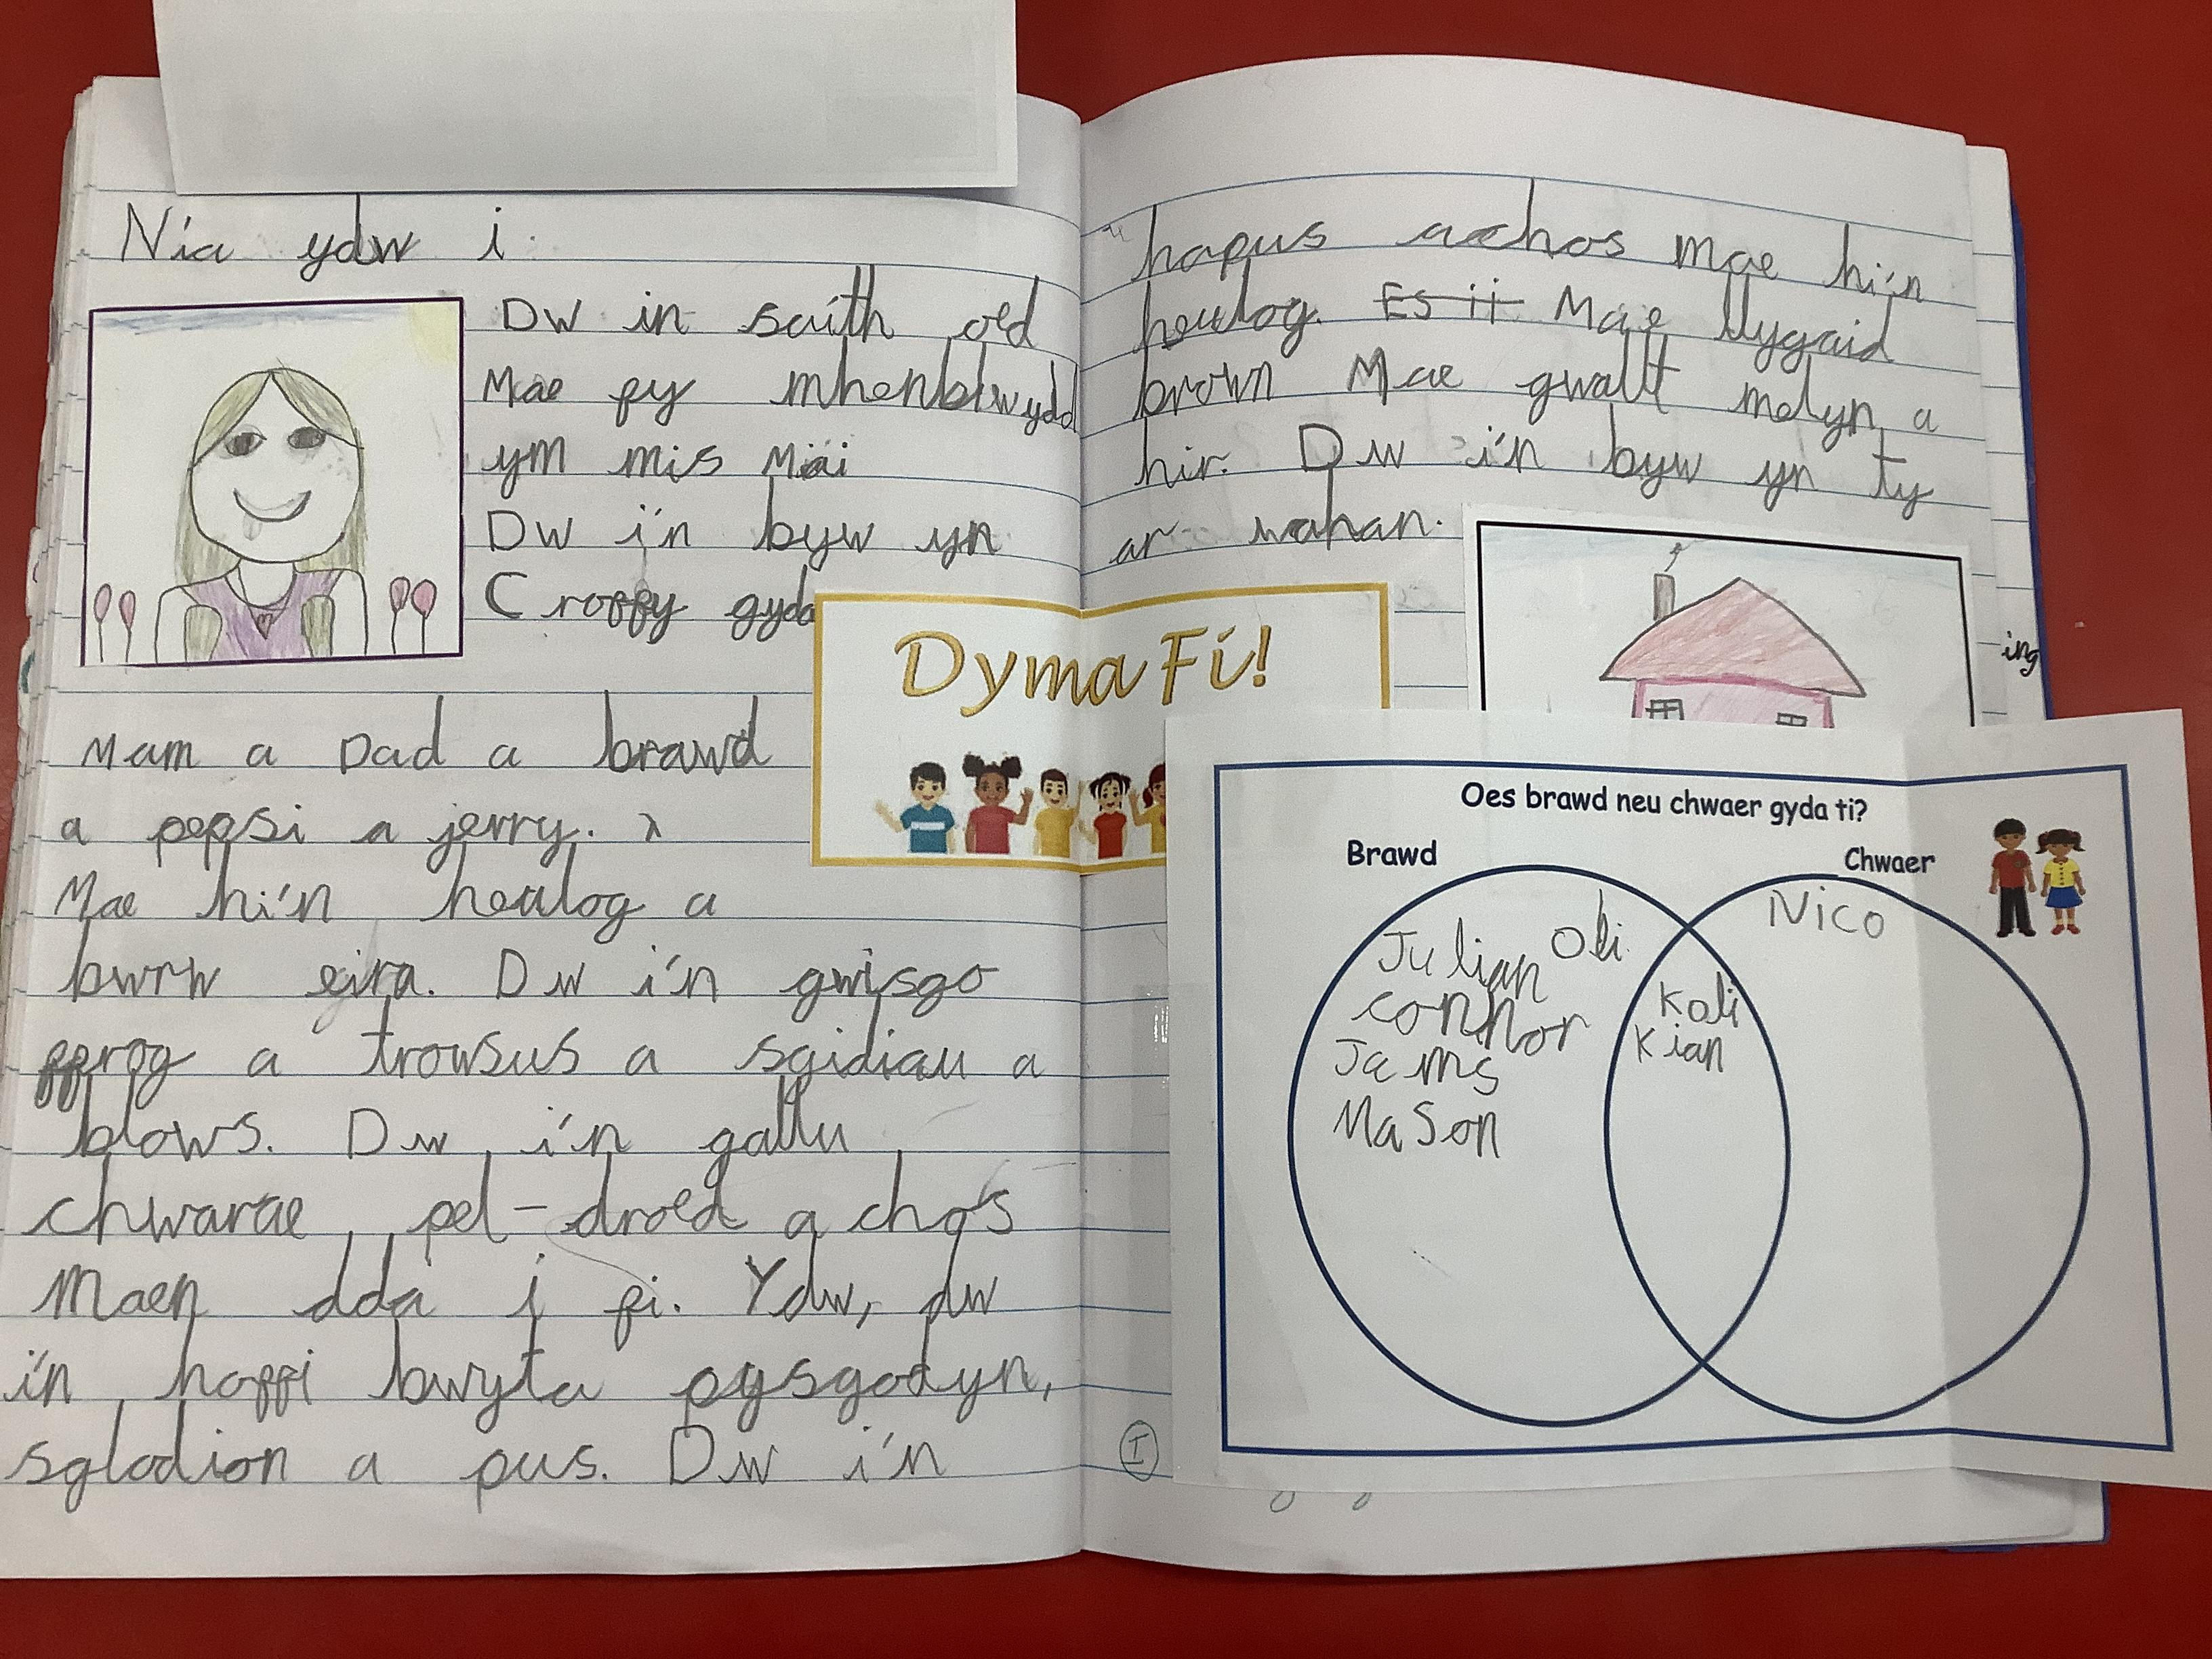 Nia ydw i.
Dw in saith oed
Mae fy mhenblwydd
ym mis Mai
Dw i'n byw yn
Croffy gyda
Mam a Dad a brawd
a pepsi a jerry.
Mae hi'n heulog a
bwrw eira. Dw i'n gwisgo
ffrog a trowsus a sgidiau a
blows. Dw i'n gallu
chwarae pel-droed achos
Maen dda i fi. Ydw, dw
i'n hoffi bwyta pysgodyn,
sglodion a pus. Dw i'n
hapus achos Mae hi'n
heulog. Es ii Mae llygaid
brown Mae gwallt melyn a
hir. Dw i'n byw yn ty
ar wahan.
ing
Dyma Fi!
Oes brawd neu chwaer gyda ti?
Brawd
Chwaer
Julian Oli
connor
Jams
Mason
Kali
Kian
Nico
I